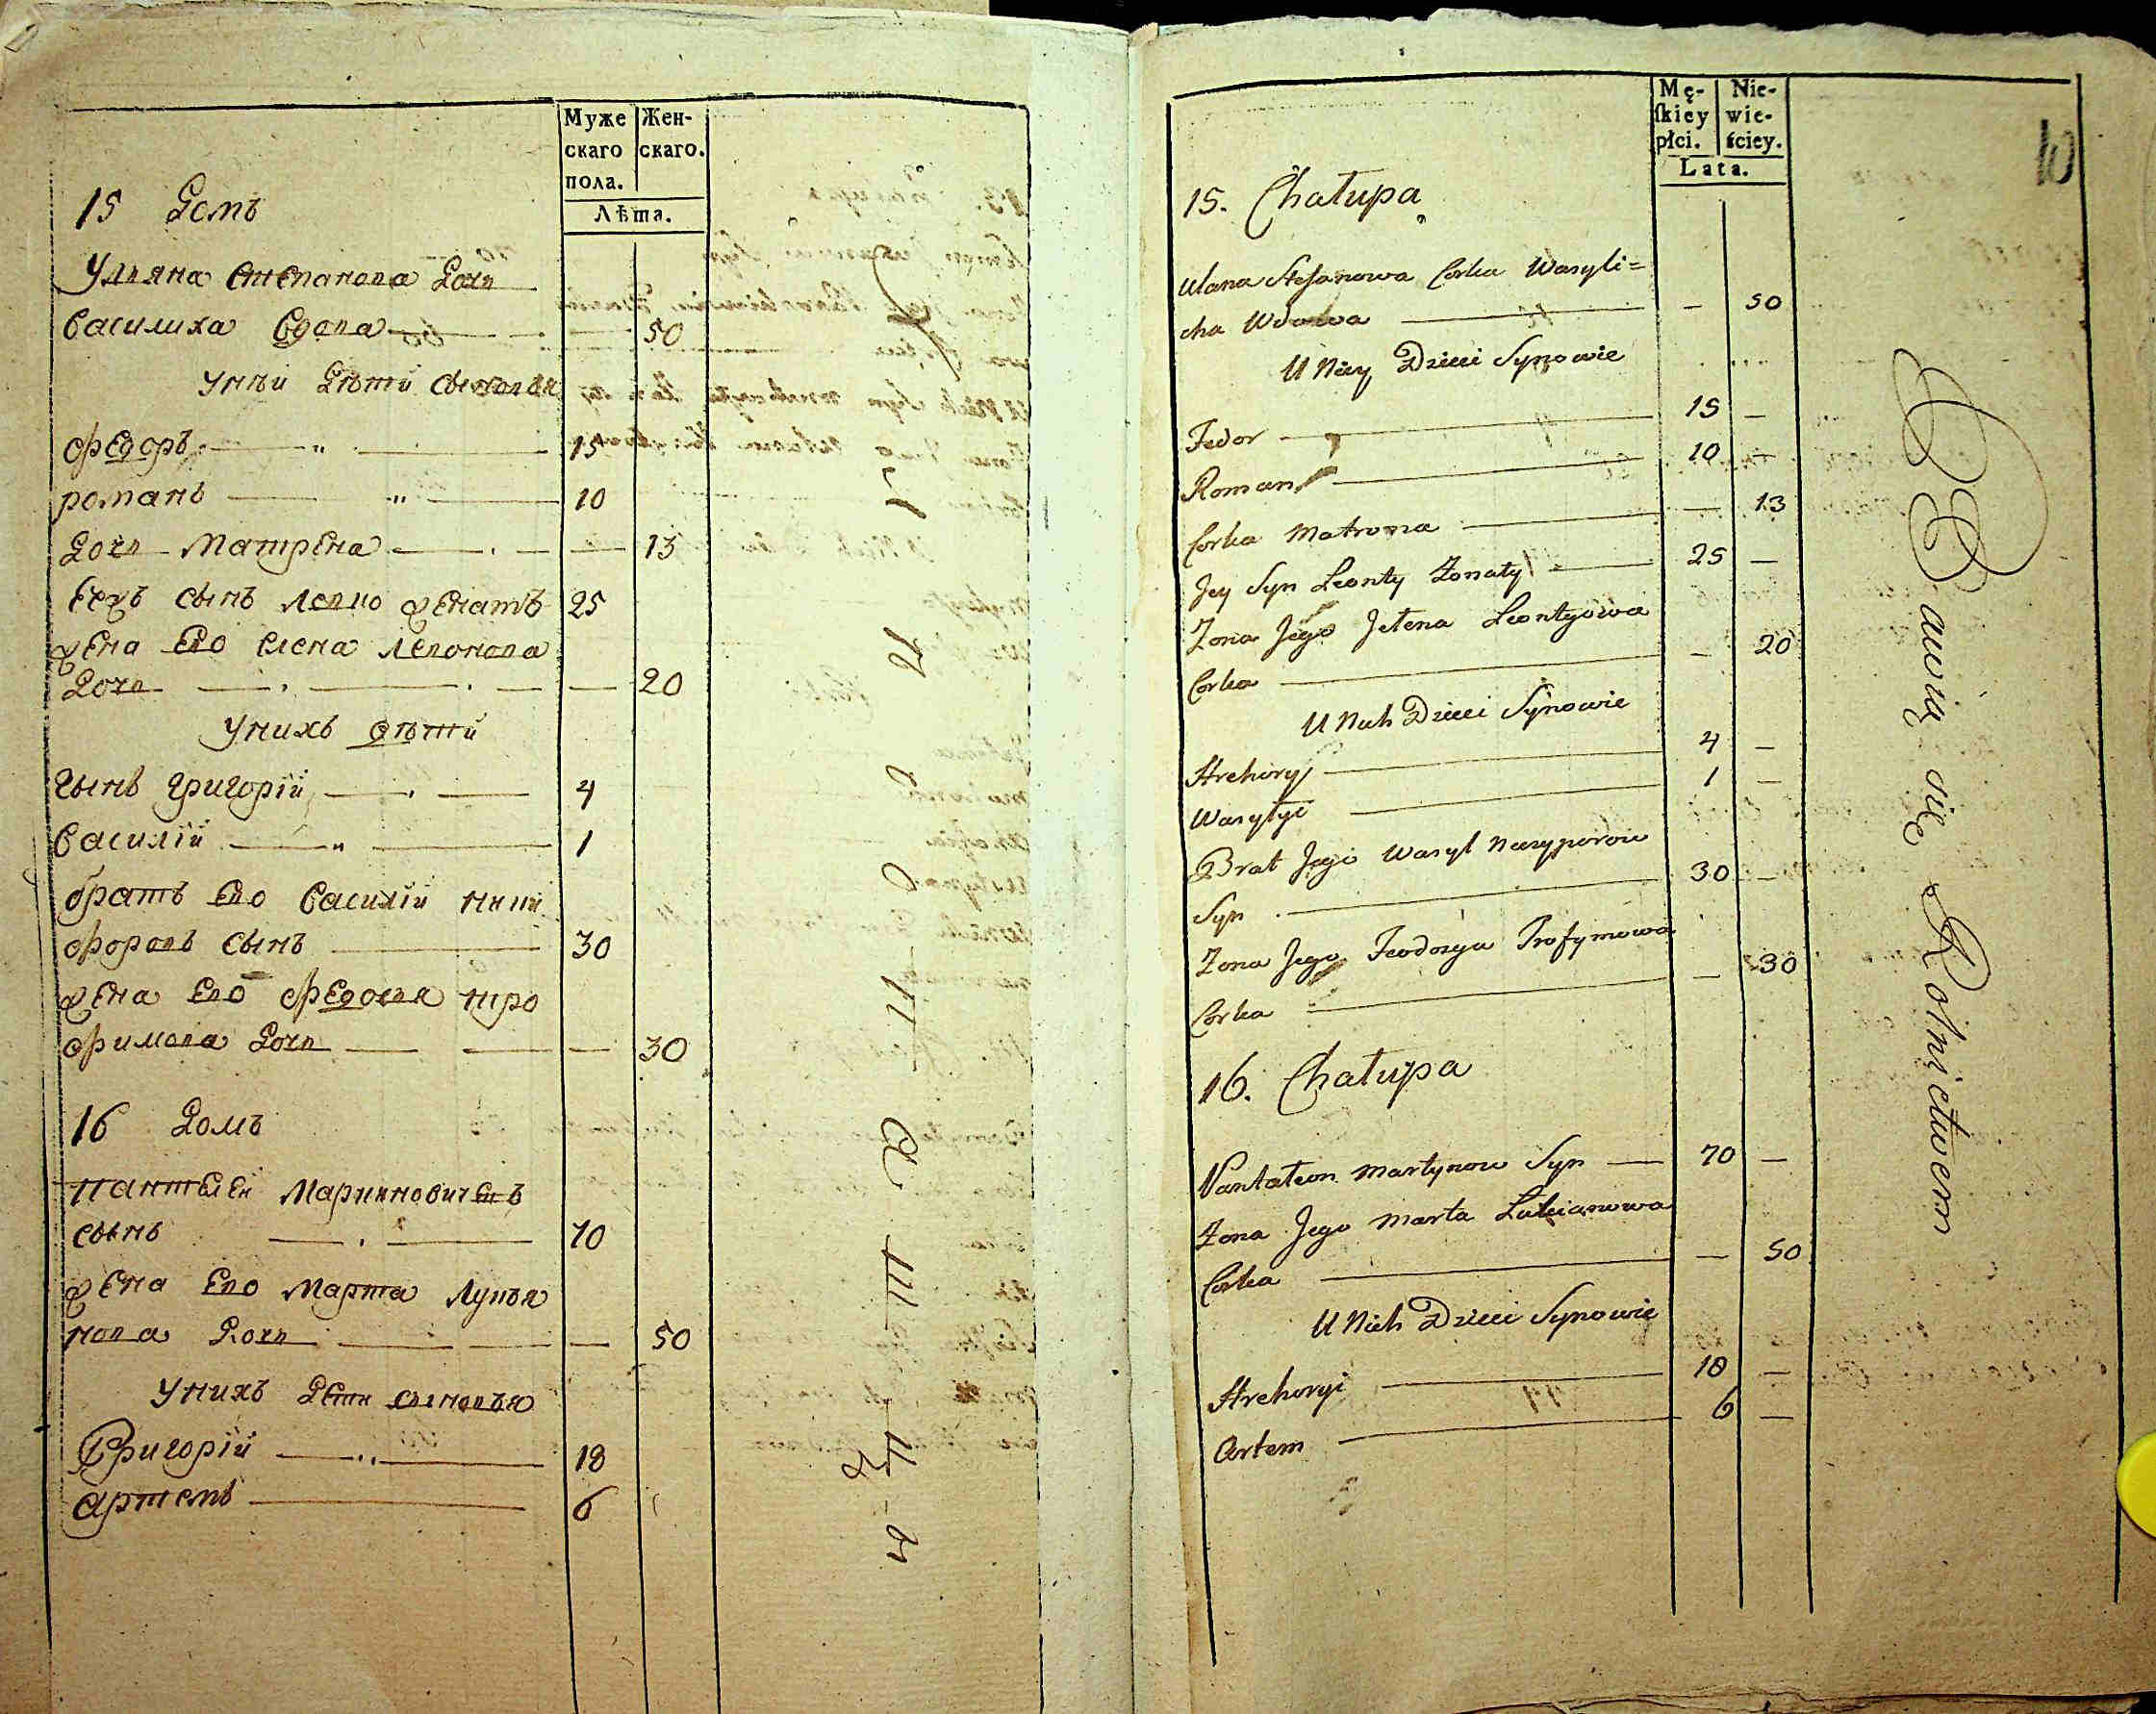 Муже
скаго
пола.
Жен-
скаго.
Лѣта.
15 Домъ
Ульяна Степанова Дочь
Василиха Вдова — — 50
У ней Дѣти сыновья
Федоръ — " — 15
романъ — " — 10
Дочь Матрена — — 13
Еехъ сынъ Левко женатъ 25
жена Ево Елена Левонова
Дочь — — 20
У нихъ дѣти
Сынъ григорій — 4
Василій — " — 1
братъ Ево Василій
сынъ — 30
жена Ево Федосья тро
фимова Дочь — — 30
16 Домъ
пантелей Мартиновичевъ
сынъ — 70
жена Ево Марта Лукья
нова Дочь — — 50
У нихъ Дети сыновья
Григорій — 18
артемъ — 6
Mę-
ſkiey
płci.
Nie-
wie-
ściey.
Lata.
10
15. Chałupa
Ulana Stefanowa Corka Wasyli=
cha Wdowa — — 50
U Niey Dzieci Synowie
Fedor — 15 —
Roman — 10 —
Corka Matrona — — 13
Jey Syn Leonty Zonaty — 25 —
Zona Jego Jelena Leontyowa
Corka — — 20
U Nich Dzieci Synowie
Hrehory — 4 —
Wasylyi — 1 —
Brat Jego Wasyl Nczyporow
Syn — 30 —
Zona Jego Teodosya Trofymowa
Corka — — 30
16. Chałupa
Pantaleon Martynow Syn — 70 —
Zona Jego Marta Łukianowa
Corka — — 50
U Nich Dzieci Synowie
Hrehoryi — 18 —
Artem — 6 —
Bawią się Rolnictwem